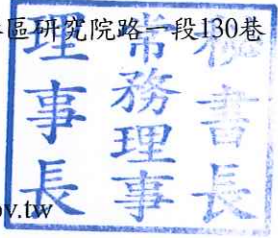 區研究院路一段130巷
理事長
常務理事
秘書長
ov.tw